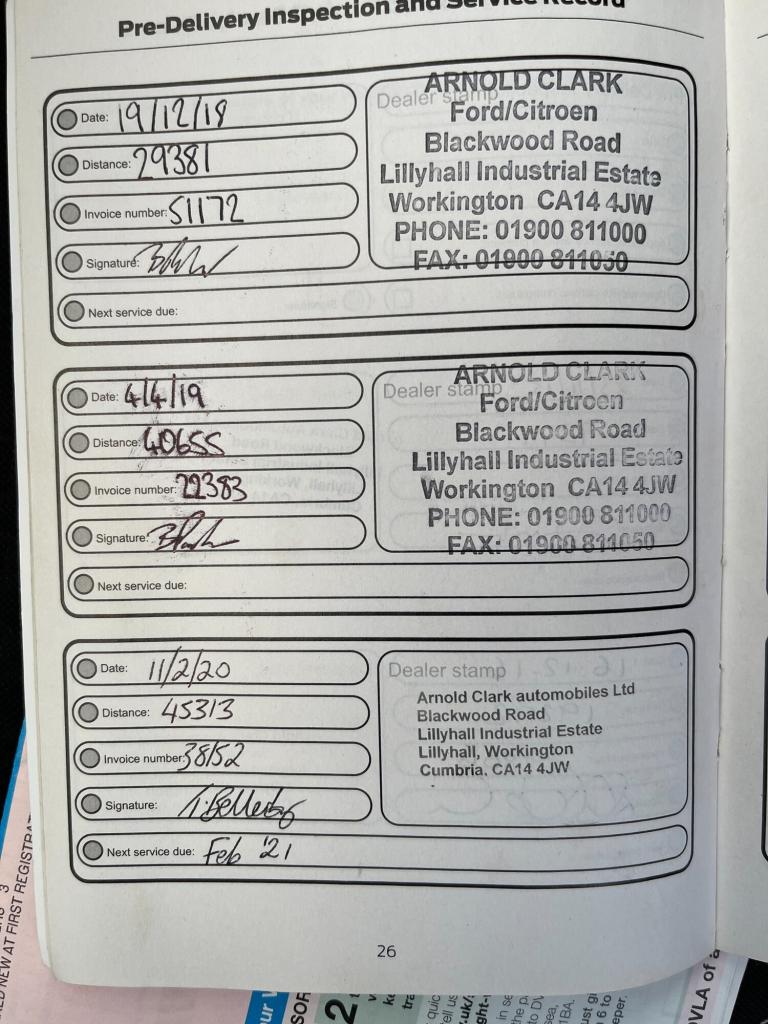 Pre-Delivery Inspection and Service Record
Date: 19/12/18
Distance: 29381
Invoice number: 51172
Signature:
Next service due:
Dealer stamp
ARNOLD CLARK
Ford/Citroen
Blackwood Road
Lillyhall Industrial Estate
Workington CA14 4JW
PHONE: 01900 811000
FAX: 01900 811050
Date: 4/4/19
Distance: 40655
Invoice number: 22383
Signature:
Next service due:
Dealer stamp
ARNOLD CLARK
Ford/Citroen
Blackwood Road
Lillyhall Industrial Estate
Workington CA14 4JW
PHONE: 01900 811000
FAX: 01900 811050
Date: 11/2/20
Distance: 45313
Invoice number: 38152
Signature:
Next service due: Feb '21
Dealer stamp
Arnold Clark automobiles Ltd
Blackwood Road
Lillyhall Industrial Estate
Lillyhall, Workington
Cumbria. CA14 4JW
26
NEW AT FIRST
3
2
VLA of